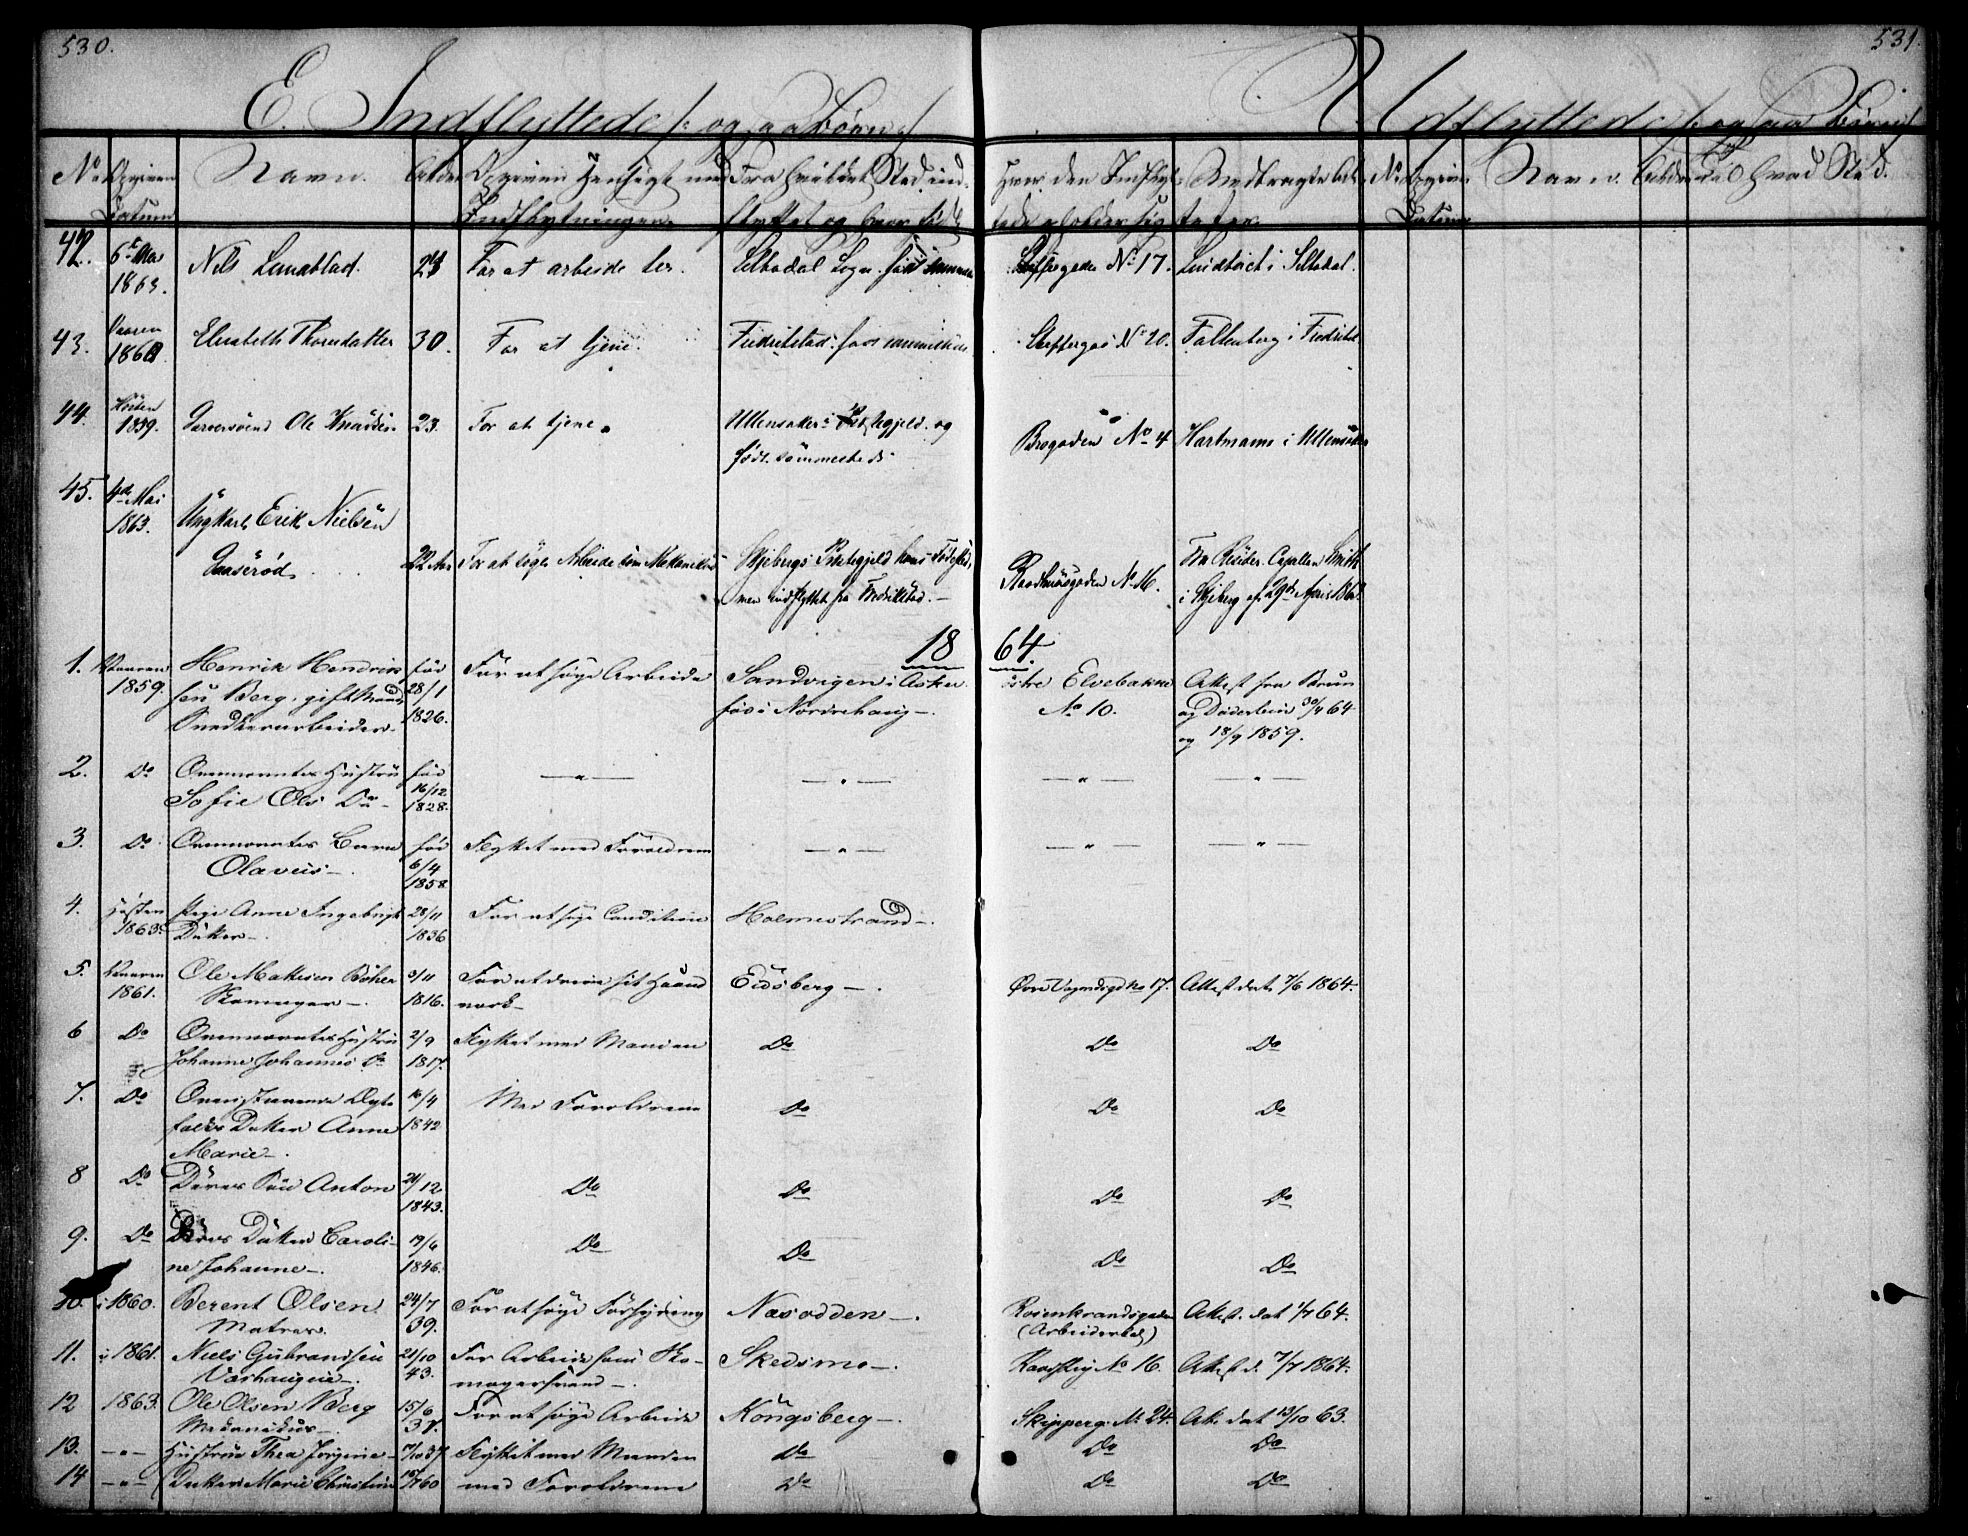 530.
531.
E. Indflyttede /: ogsaa Børn :/
Udflyttede /: ogsaa Børn :/
No Opgiven Datum
Navn.
Alder
Opgiven Hensigt med Indflytningen.
Fra hvilket Sted indflyttet og hvor født
Hvor den Indflyttede opholder sig
Medbragte Attester.
No Opgiven Datum
Navn.
Alder
Til hvad Sted.
42. 6te Mai 1863. Nels Lundblad. 24 For at arbeide her. Silbodal Sogn. født
No 17. i Silbodal.
43. Vaaren Elisabeth Thorsdatter 30. For at tjene. Fredrikstad. født sammesteds
No 20. Faltenberg i Fredrikst.
44. Høsten 1859. Garversvend Ole Knudsen 23. For at tjene. Ullensaker Præstegjeld. og
født sammesteds
Brogaden No 4 Hartmann i Ullensaker
45. 4de Mai 1863. Ungkarl Erik Nielsen
Gaaserød 22 Aar For at søge Arbeide som Mekanikus Skjebergs Præstegjeld hans Fødested,
men indflyttet fra Fredrikstad.
Raadhusgaden No 16. Fra Resider. Capellan Smith
i Skjeberg af 29de April 1863.
1864.
1. Vaaren 1859. Henrik Hendriksen Berg, gift Mand,
Snedkerarbeider. fød 28/1 1826. For at søge Arbeide Sandvigen i Asker
fød i Norderhaug
østre Elvebakke No 10. Attest fra Bruun
og Døderlein 30/4 64
og 18/9 1859.
2. Do Ovennævntes Hustru
Sofie Ols Da fød 16/12 1828. — " — — " —
— " — — " —
3. Do Ovennævntes Barn
Olaves fød 6/4 1858 Flyttet med Forældrene — " —
— " — — " —
4. Høsten 1863. Pige Anne Ingebrigt
Datter 28/11 1836 For at søge Condition Holmestrand
5. Vaaren 1861. Ole Mathisen
Skomager 3/11 1816. For at drive sit Haand
værk Eidsberg
Øvre Vognmdgd No 17. Attest dat. 7/6 1864.
6 Do Ovennævntes Hustru
Johanne Johannes Da 2/9 1817. Flyttet med Manden Do
Do Do
7. Do Ovenstaaende Ægte
folks Datter Anne
Marie 16/4 1842 Med Forældrene Do
Do Do
8 Do Deres Søn Anton /12 1843. Do Do
Do Do
9. Do Deres Datter Caroli-
ne Johanne 19/6 1846. Do Do
Do Do
10. i 1860. Berent Olsen
Matros. 24/7 39. For at søge Forhyring Næsodden
Rosenkrandsgaden
(Arbeiderbol) Attest. dat 1/7 64.
11. i 1861. Niels Gulbrandsen
Værhaugeie 21/10 43. For Arbeide som Sko-
magersvend Skedsmo
No 16. Attest d. 7/7 1864.
12 1863. Ole Olsen Berg
Mekanikus 15/6 37. For at søge Arbeide Kongsberg
Skipperg. No 24. Att. dat 13/10 63.
13. — " — Hustrue Thea Jørgine 7/10 37 Flyttet med Manden Do
Do Do
14 — " — Datter Marie Christine 60 med Forældrene Do
Do Do